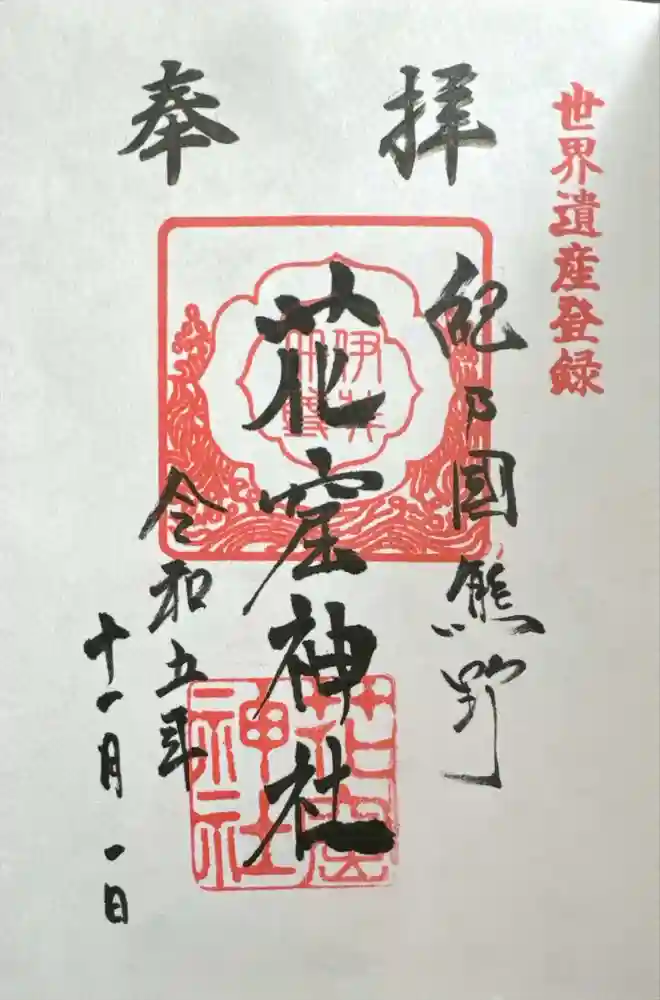 世界遺産登録
奉拝
紀乃國熊野
花窟神社
伊弉冊尊
花窟神社
令和五年
十一月一日